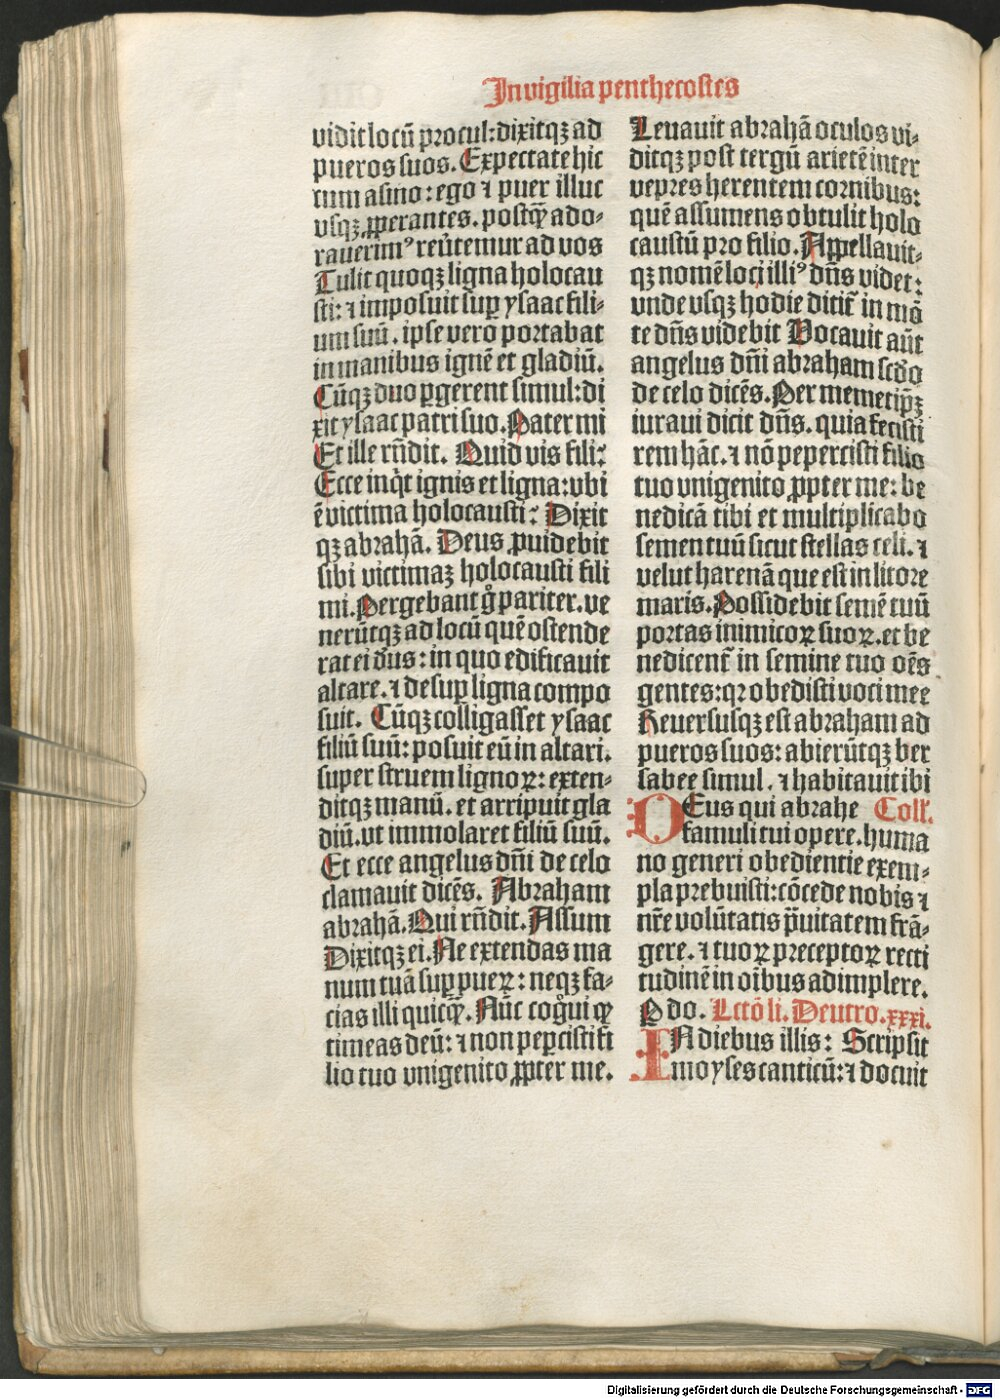 In vigilia penthecostes
vidit locū procul: dixitqꝫ ad
pueros suos. Expectate hic
cum asino: ego ⁊ puer illuc
vsqꝫ ꝓperantes. postqꝫ̄ ado-
rauerimꝰ reūtemur ad vos
Tulit quoqꝫ ligna holocau
sti: ⁊ imposuit suꝑ ysaac fili-
um suū. ipse vero portabat
in manibus ignē et gladiū.
Cūqꝫ duo ꝑgerent simul: di
xit ysaac patri suo. Pater mi
Et ille rn̄dit. Quid vis fili:
Ecce inq̇t ignis et ligna: vbi
ē victima holocausti: Dixit
qꝫ abrahā. Deus ꝓuidebit
sibi victimaꝫ holocausti fili
mi. Pergebant g̊ pariter. ve
nerūtqꝫ ad locū quē ostende
rat ei dūs: in quo edificauit
altare. ⁊ desuꝑ ligna compo
suit. Cūqꝫ colligasset ysaac
filiū suū: posuit eū in altari.
super struem lignoꝝ: exten-
ditqꝫ manū. et arripuit gla
diū. vt immolaret filiū suū.
Et ecce angelus dn̄i de celo
clamauit dicēs. Abraham
abrahā. Qui rn̄dit. Assum
Dixitqꝫ ei. Ne extendas ma
num tuā suꝑ pueꝝ: neqꝫ fa-
cias illi quicqꝫ̄. Nūc cog̊ui ꝙ
timeas deū: ⁊ non peꝑcisti fi
lio tuo vnigenito ꝓpter me.
Leuauit abrahā oculos vi-
ditqꝫ post tergū arietē inter
vepres herentem cornibus:
quē assumens obtulit holo
caustū pro filio. Appellauit-
qꝫ nomē loci illiꝰ dn̄s videt:
vnde vsqꝫ hodie dicit̄ in mō
te dn̄s videbit Vocauit aūt
angelus dn̄i abraham scd̄o
de celo dicēs. Per memetip̄ꝫ
iuraui dicit dn̄s. quia fecisti
rem hāc. ⁊ nō pepercisti filio
tuo vnigenito ꝓpter me: be
nedicā tibi et multiplicabo
semen tuū sicut stellas celi. ⁊
velut harenā que est in litore
maris. Possidebit semē tuū
portas inimicoꝝ suoꝝ. et be
nedicent̄ in semine tuo oēs
gentes: qꝛ obedisti voci mee
Reuersusqꝫ est abraham ad
pueros suos: abierūtqꝫ ber
sabee simul. ⁊ habitauit ibi
DEus qui abrahe Coll̄.
famuli tui opere. huma
no generi obedientie exem-
pla prebuisti: cōcede nobis ⁊
nr̄e volūtatis p̄uitatem frā-
gere. ⁊ tuoꝝ preceptoꝝ recti
tudinē in oībus adimplere.
P do. Lctō li. Deutro. xxxi.
IN diebus illis: Scripsit
moyses canticū: ⁊ docuit
Digitalisierung gefördert durch die Deutsche Forschungsgemeinschaft - DFG